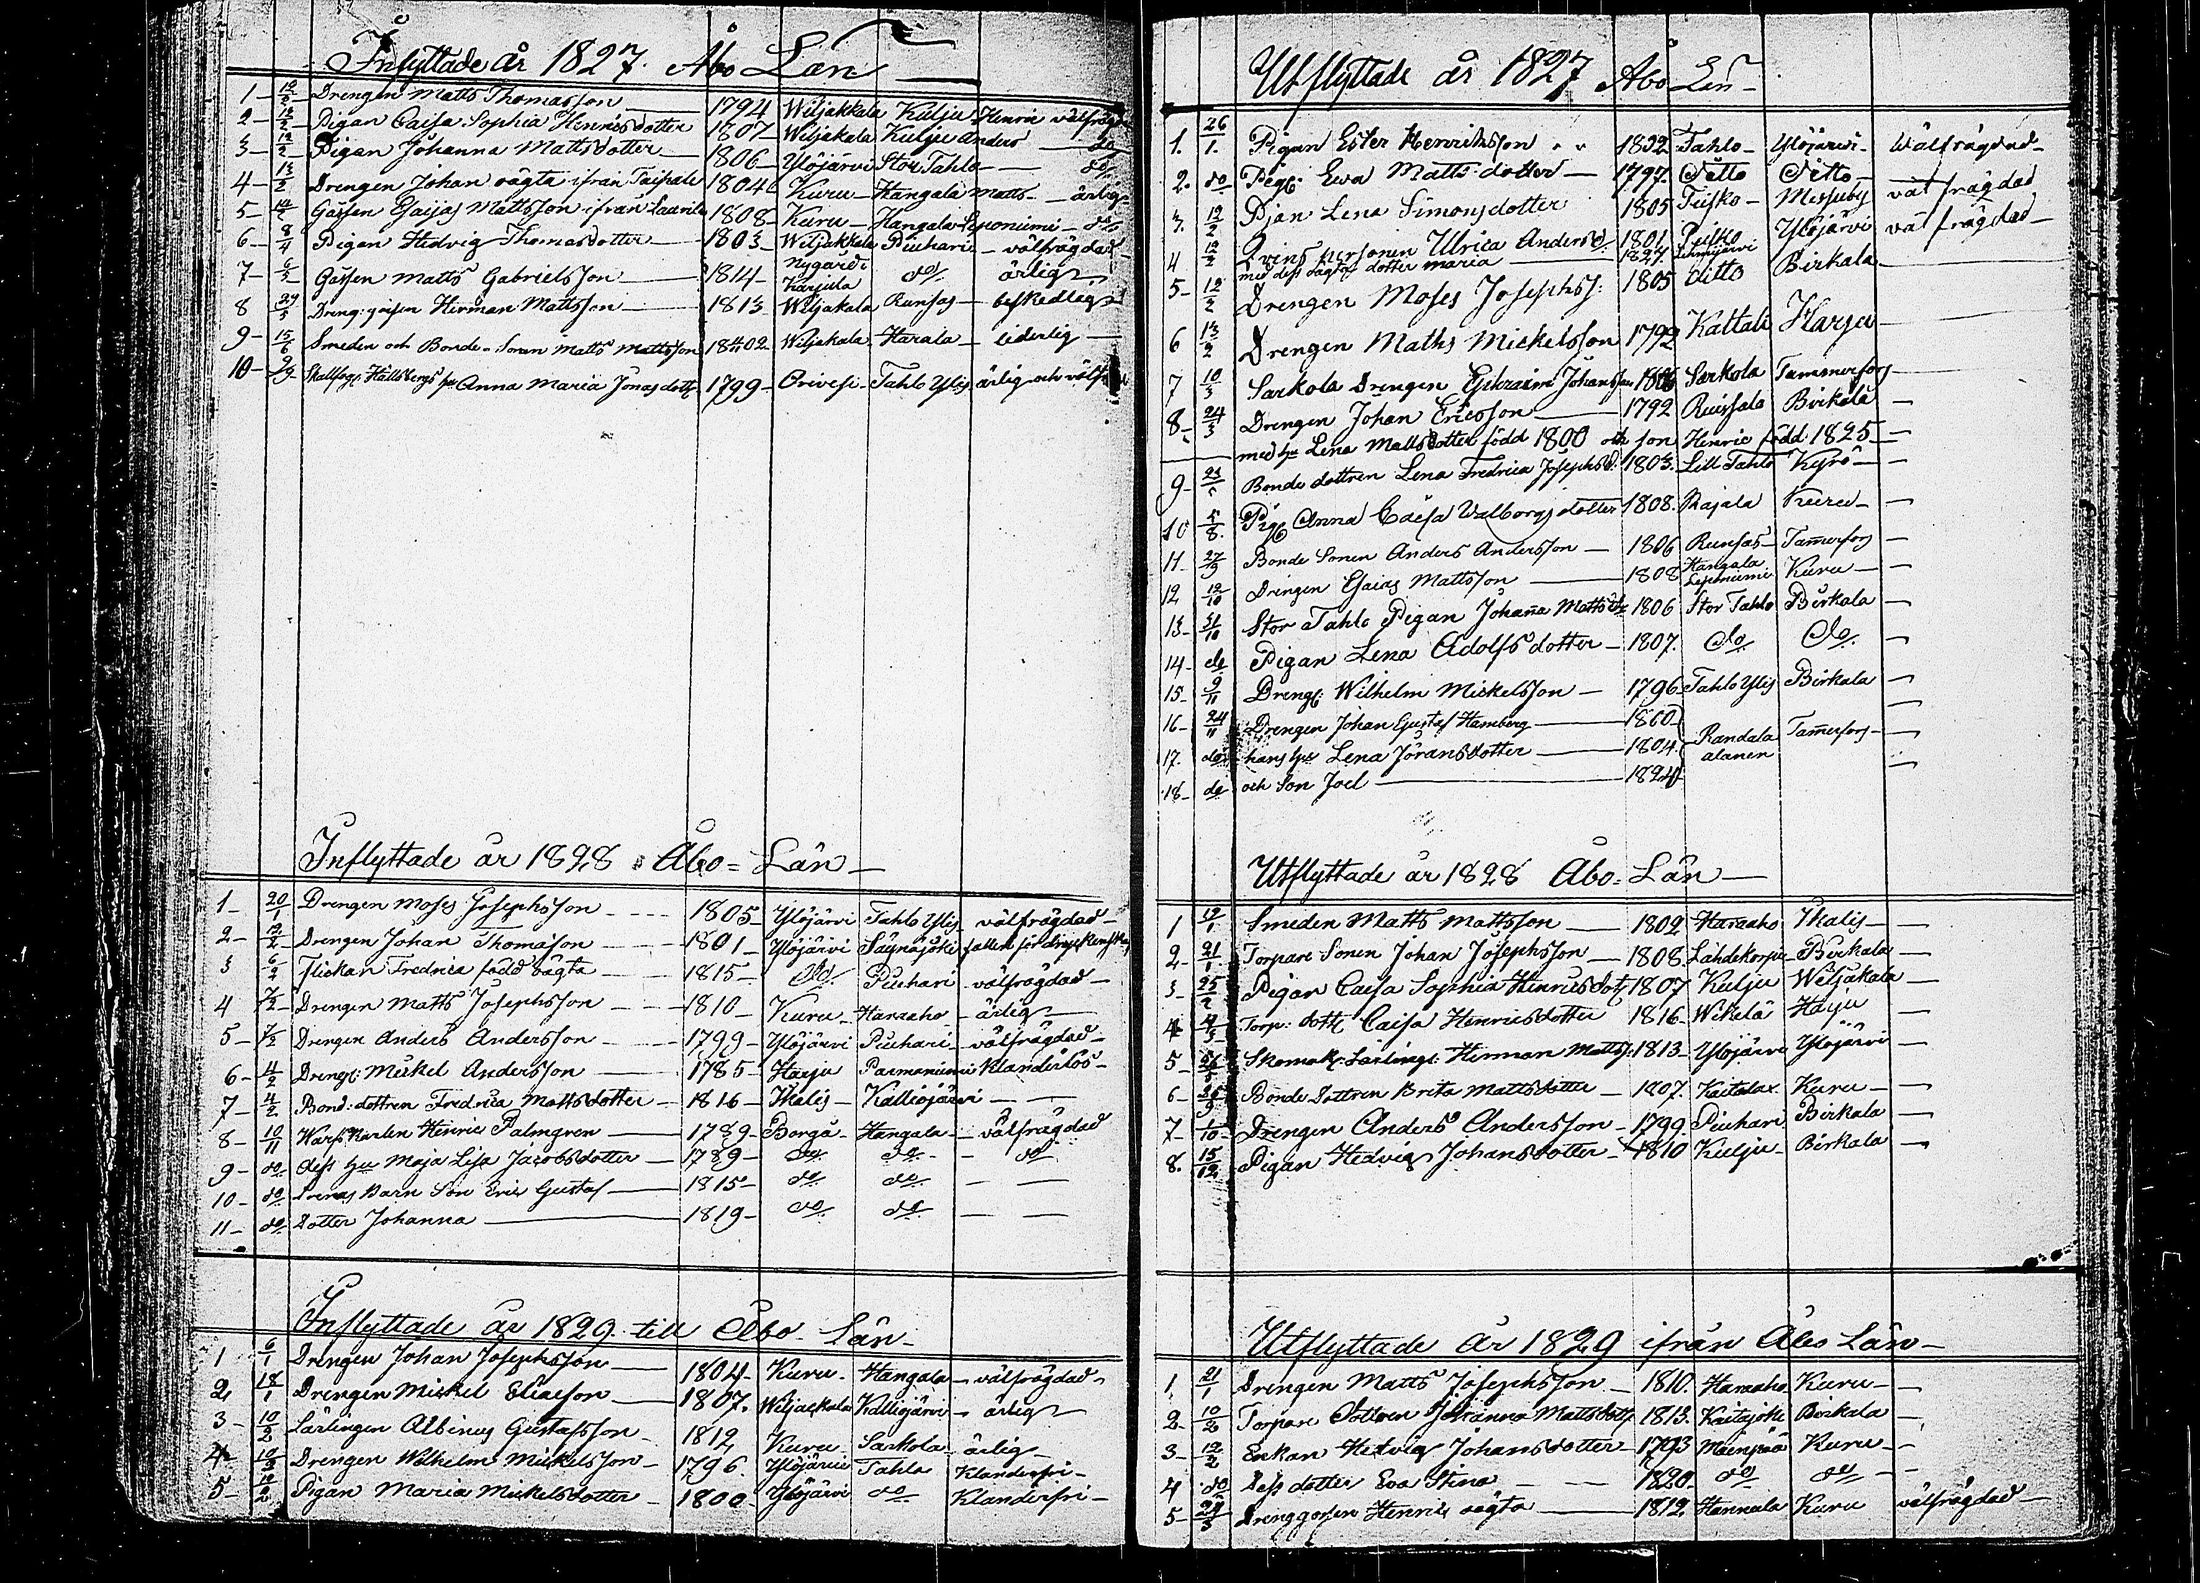 Inflyttade år 1827. Åbo Län
1 - 12/2 - Drengen Matts Thomasson - 1794 Wiljakkala Kulju Henric välfrägd
2 - 12/2 - Pigan Caisa Sophia Henricsdotter 1807 Wiljakala Kulju Anders - do
3 - 12/2 - Pigan Johanna Mattsdotter - 1806 - Ylöjärvi Stor Tahlo - do
4 - 13/2 Drengen Johan oägta ifrån Taipale 1804 Kuru - Hangala Matts - ärlig
5 - 14/2 Gåssen Esaijas Mattsson ifrån 1808 - Kuru - Hangala Leponiemi - do
6 - 8/4 Pigan Hedvig Thomasdotter - 1803 - Wiljakkala Piuhari - välfrägdad
7 - Gåssen Matts Gabrielsson - 1814 - Nygård i Karjula do ärlig
8 29/5 Dreng: gåssen Herman Mattsson - 1813 Wiljakala Runsas - beskedlig
9 - 15/6 Smeden och Bonde-Sonen Matts Mattsson 1802 Wiljakala Harala - liderlig -
10 - 9/9 Hållsbergs hu Anna Maria Jonasdotter 1799 - Orivesi - Tahlo Ylis ärlig och välf
Inflyttade år 1828 Åbo = Län -
1 - 20/1 Drengen Moses Josephsson - 1805 - Ylöjärvi Tahlo Ylis välfrägdad -
2 - 12/2 - Drengen Johan Thomasson - 1801 - Ylöjärvi Säynäjoki
3 6/2 Flickan Fredrica född oägta - 1815 - do Piuhari - välfrägdad -
4 7/2 - Drengen Matts Josephsson - 1810 - Kuru - Haraaho - ärlig -
5 - Drengen Anders Andersson - 1799 - Ylöjärvi Piuhari - välfrägdad -
6 - 4/2 Drengen Mickel Andersson - 1785 - Harju Parmaniemi Klanderlös -
7 - 4/2 Bond: dottren Fredrica Mattsdotter - 1816 - Ikalis - Kalliojärvi -
8 - 10/11 Karlen Henric Palmgren - 1789 - Borgå - Hangala - välfrägdad
9 - do dess hu Maja Lisa Jacobsdotter - 1789 - do do - do
10 - do Deras Barn Son Eric Gustaf - 1815 - do do -
11 - do Dotter Johanna - 1819 - do do -
Inflyttade år 1829 till Åbo Län -
1 6/1 Drengen Johan Josephsson - 1804 - Kuru - Hangala - välfrägdad -
2 18/1 Drengen Mickel Eliaeson - 1807. Wiljackala Kalliojärvi - ärlig -
3 - 10/2 Lärlingen Albinus Gustafsson - 1812 Kuru - Sarkola - ärlig -
4 - 10/2 Drengen Wilhelm Mickelsson - 1796. Ylöjärvi Tahlo Klanderfri -
5 - 12/2 Pigan Maria Mickelsdotter - 1800 - Ylöjärvi do Klanderfri -
Utflyttade år 1827 Åbo Län -
1. 26/1. Pigan Ester Henriksson 1802 Tahlo - Ylöjärvi - Wälfrägdad -
2. do Pig: Ewa Matts dotter - 1797. Ditto Ditto -
3. 12/2 Pian Lena Simonsdotter 1805 Teisko - Messuby väl frägdad
4 12/2 Qvins personen Ulrica Anders d. 1801 Ylöjärvi väl frägdad -
med dess oägta dotter Maria - 1827.
5 - 12/2 Drengen Moses Josephss: 1805 ditto Birkala -
6 13/2 Drengen Maths Mickelsson 1792 Kaltali Harju -
7 10/3 Sarkola Drengen Ephraim Johansson 1806 Sarkola Tammerfors
8 - 24/3 Drengen Johan Ericsson - 1792 Ruissala Birkala -
med hu Lena Mattsdotter född 1800 och son Henric född 1825 -
9 - Bonde dottren Lena Fredrica Josephsd. 1803. Lill Tahlo Kyrö -
10 5/8. Pig: Anna Caisa Walborgsdotter 1808. Majala Kuru -
11 - 27/9 Bonde Sonen Anders Andersson - 1806 Runsas - Tamerfors -
12 12/10 Drengen Esaias Mattsson - 1808 Hangala Leponiemi Kuru -
13 - 31/10 Stor Tahlo Pigan Johana Mattsdr 1806 Stor Tahlo Birkala -
14 - do Pigan Lena Adolfs dotter - 1807. do do. -
15 - 9/11 Dreng: Wilhelm Mickelsson - 1796 Tahlo Ylis Birkala -
16 - 24/11 Drengen Johan Gustaf Hamberg - 1800
17. do hans hu Lena Jöransdotter - 1804. Randala alanen Tamerfors -
18 - do och Son Joel - 1824
Utflyttade år 1828 Åbo = Län -
1 12/1 Smeden Matts Mattsson - 1802 Haraaho Ikalis -
2 - 21/1 Torpare Sonen Johan Josephsson - 1808. Lähdekorpi Birkala -
3 - 25/2 Pigan Caisa Sophia Henricsdotr 1807 Kulju Wiljakala -
4 Torp: dottr Caisa Henricsdotter 1816 - Mikelä Harju -
5 - Skomak: Lärlings: Herman Matts: 1813 - Ylöjärvi Ylöjärvi -
6 - Bonde Dottren Brita Mattsdotter - 1807. Kaitalax Kuru -
7 - 1/10 - Drengen Anders Andersson - 1799 Piuhari Birkala -
8. 15/12 Pigan Hedvig Johansdotter - 1810 Kulju - Birkala -
Utflyttade år 1829 ifrån Åbo Län -
1 21/1 Drengen Matts Josephsson - 1810. Haraaho Kuru -
2 - 10/2 Torpare Dottren Johanna Mattsdotr 1813. Kaitajoki Birkala -
3 - 12/2 Enkan Hedvig Johansdotter - 1793 Mäenpää Kuru -
4 do Dess dotter Eva Stina - 1820 - do do -
5 - 27/3 Drenggossen Henric oägta - 1812 Hannula Kuru välfrägdad -